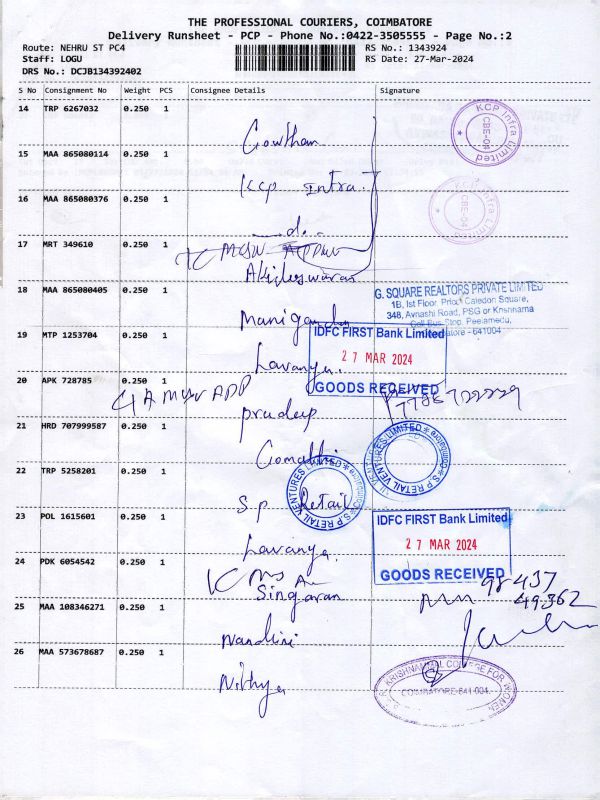 THE PROFESSIONAL COURIERS, COIMBATORE
Delivery Runsheet - PCP - Phone No.:0422-3505555 - Page No.:2
Route: NEHRU ST PC4 RS No.: 1343924
Staff: LOGU RS Date: 27-Mar-2024
DRS No.: DCJB134392402
S No Consignment No Weight PCS Consignee Details Signature
14 TRP 6267032 0.250 1
KCP Infra Limited
CBE-04
Gowtham
15 MAA 865080114 0.250 1
Kcp Infra
16 MAA 865080376 0.250 1
KCP Infra Limited
CBE-04
17 MRT 349610 0.250 1
Akileswaran
18 MAA 865080405 0.250 1
G. SQUARE REALTORS PRIVATE LIMITED
1B, Ist Floor, Caledon Square,
348, Avnashi Road, PSG or Krishnama
Bus Stop, Peelamedu,
641004
19 MTP 1253704 0.250 1
IDFC FIRST Bank Limited
27 MAR 2024
GOODS RECEIVED
Lavanya.
20 APK 728785 0.250 1
pradeep
21 HRD 707999587 0.250 1
Gomathi
S.P RETAIL VENTURES LIMITED
22 TRP 5258201 0.250 1
S.P RETAIL VENTURES LIMITED
S.p Retail
23 POL 1615601 0.250 1
IDFC FIRST Bank Limited
27 MAR 2024
GOODS RECEIVED
Lavanya.
24 PDK 6054542 0.250 1
Singaran
98437
49362
25 MAA 108346271 0.250 1
Nandhini
26 MAA 573678687 0.250 1
KRISHNAMMAL COLLEGE FOR WOMEN
COIMBATORE-641 004.
Nithya